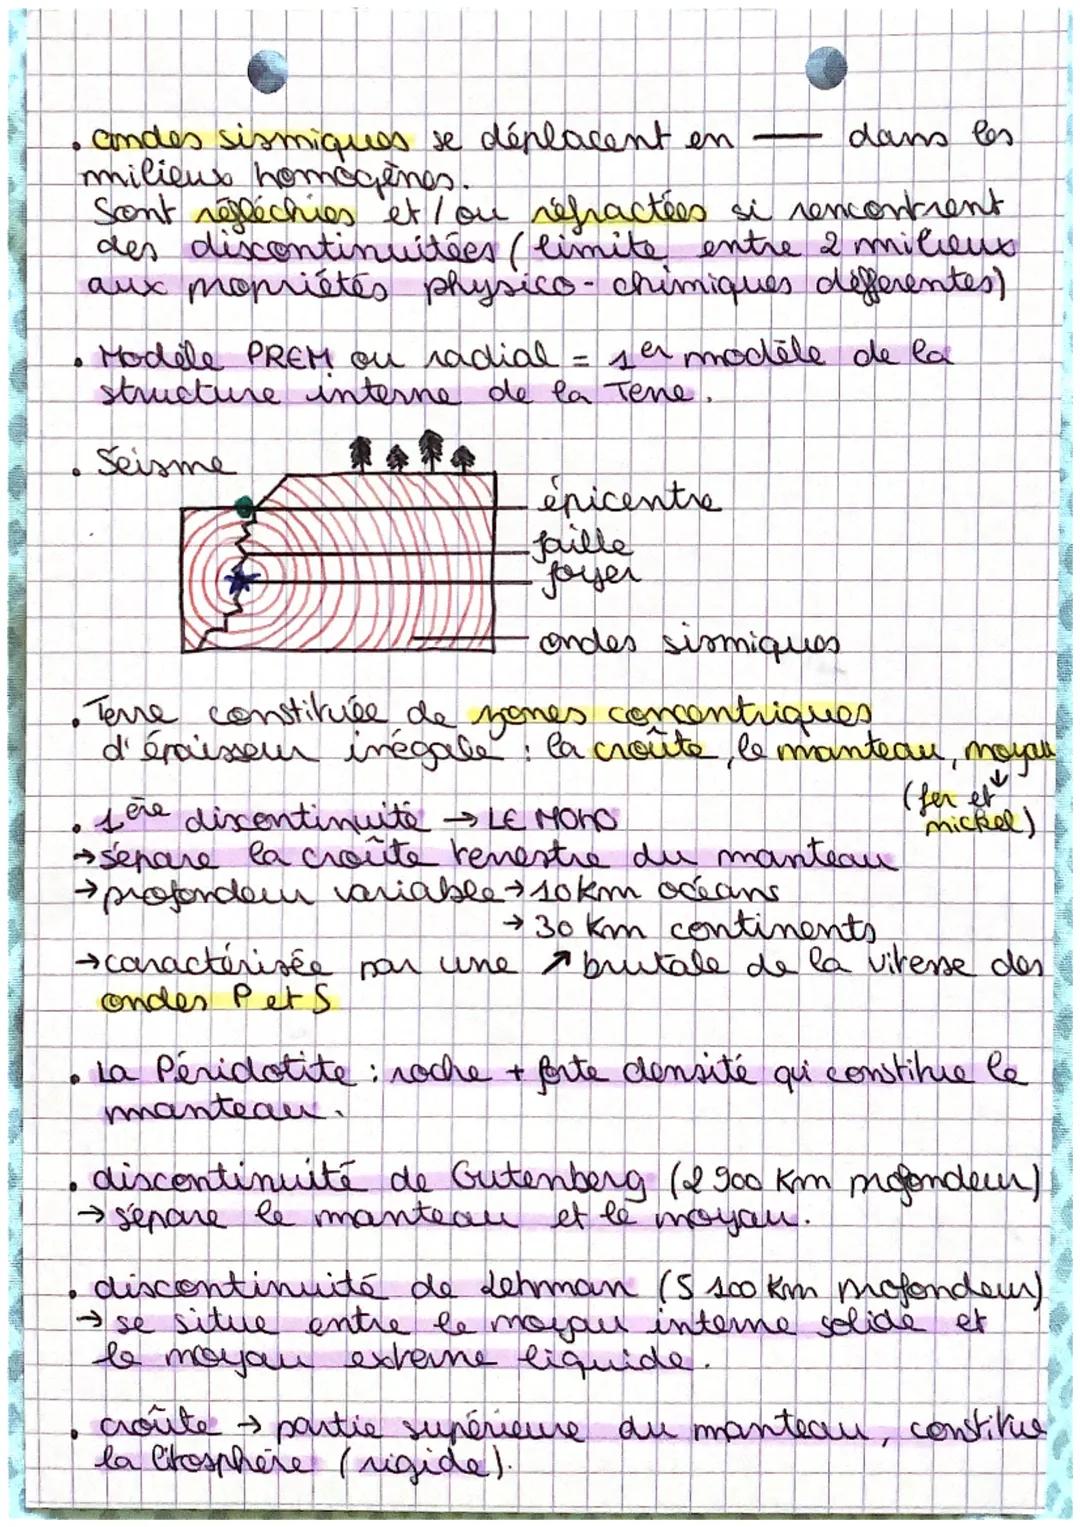 . ondes sismiques se déplacent en — dans les
milieux homogènes.
Sont réfléchies et / ou réfractées si rencontrent
des discontinuitées (limite entre 2 milieux
aux propriétés physico-chimiques différentes)
. Modèle PREM ou radial = 1er modèle de la
structure interne de la Terre.
. Séisme
épicentre
faille
foyer
ondes sismiques
. Terre constituée de zones concentriques
d'épaisseur inégale : la croûte, le manteau, noyau
(fer et
nickel)
. 1ère discontinuité → LE MOHO
→ sépare la croûte terrestre du manteau
→ profondeur variable → 10 km océans
→ 30 km continents
→ caractérisée par une ↗ brutale de la vitesse des
ondes P et S
. La Péridotite : roche + forte densité qui constitue le
manteau.
. discontinuité de Gutenberg (2 900 km profondeur)
→ sépare le manteau et le noyau.
. discontinuité de Lehman (5 100 km profondeur)
→ se situe entre le noyau interne solide et
le noyau externe liquide.
. croûte → partie supérieure du manteau, constitue
la litosphère (rigide).